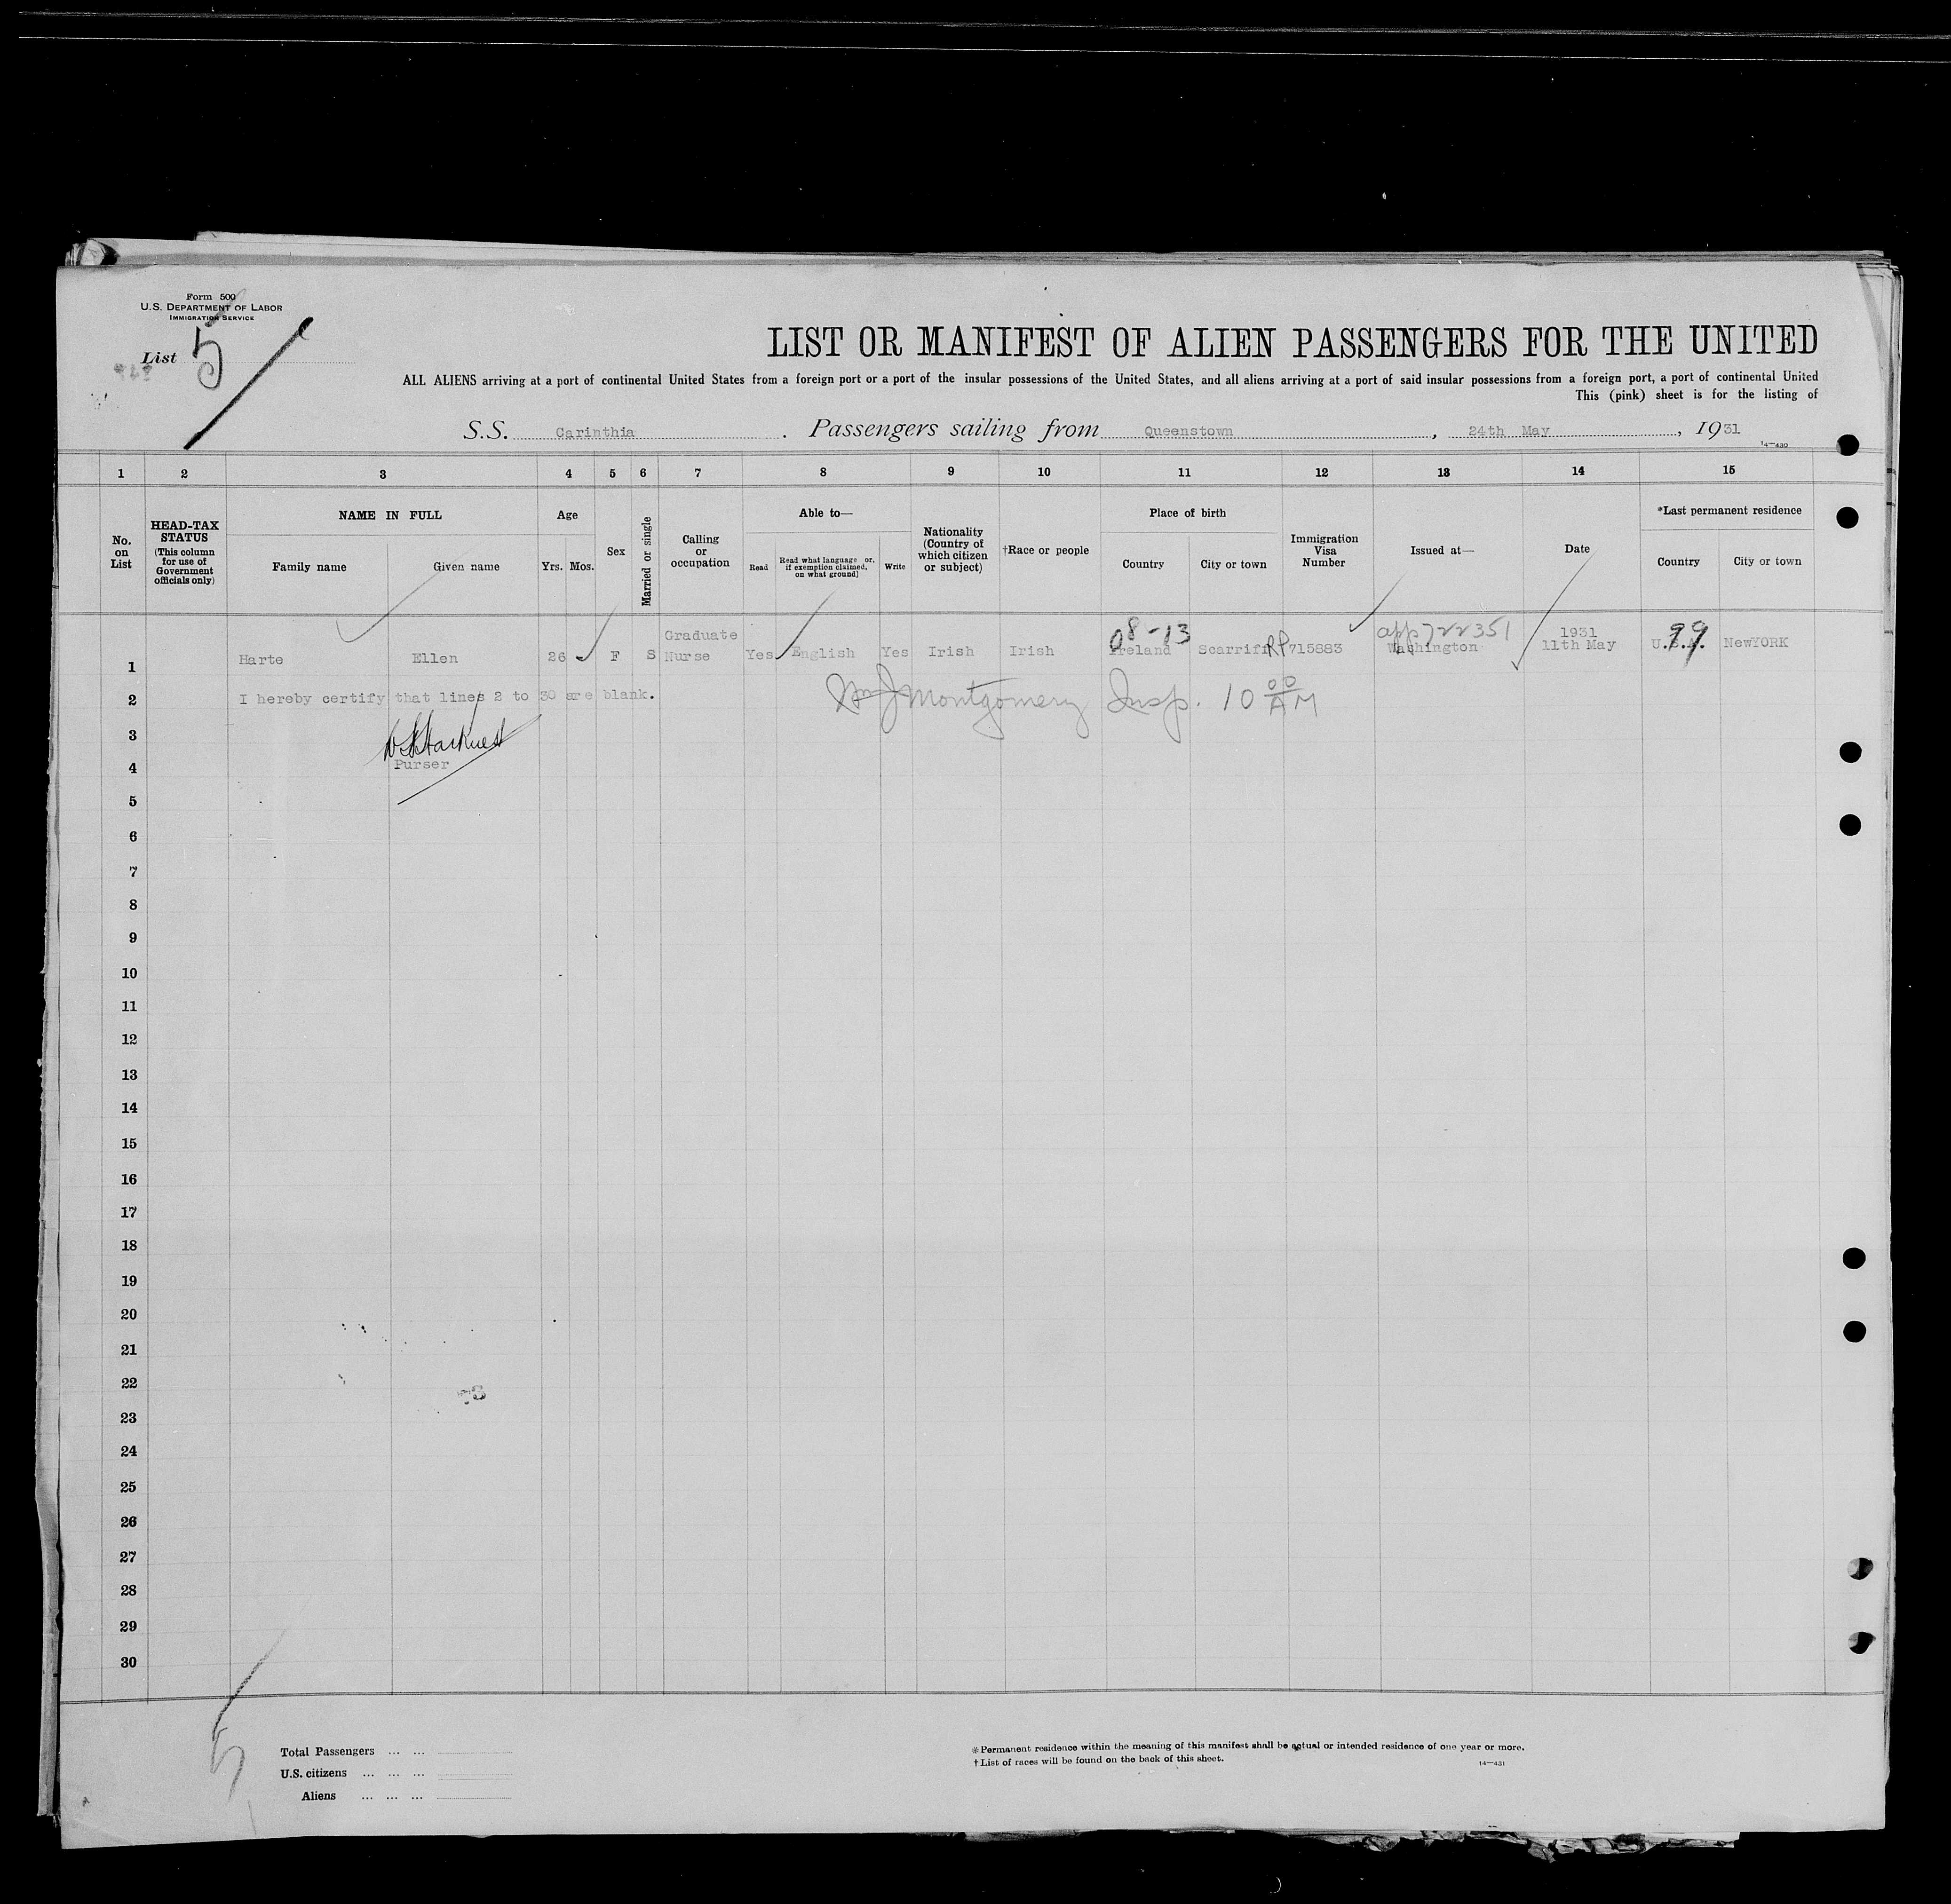 Form 500
U.S. DEPARTMENT OF LABOR
IMMIGRATION SERVICE
List 5
LIST OR MANIFEST OF ALIEN PASSENGERS FOR THE UNITED
ALL ALIENS arriving at a port of continental United States from a foreign port or a port of the insular possessions of the United States, and all aliens arriving at a port of said insular possessions from a foreign port, a port of continental United
This (pink) sheet is for the listing of
S.S. Carinthia. Passengers sailing from Queenstown, 24th May, 1931
14—430
1 2 3 4 5 6 7 8 9 10 11 12 13 14 15
No. on List
HEAD-TAX STATUS (This column for use of Government officials only)
NAME IN FULL
Family name Given name
Age
Yrs. Mos.
Sex
Married or single
Calling or occupation
Able to—
Read
Read what language or, if exemption claimed, on what ground)
Write
Nationality (Country of which citizen or subject)
†Race or people
Place of birth
Country City or town
Immigration Visa Number
Issued at—
Date
*Last permanent residence
Country City or town
1 Harte Ellen 26 F S Graduate Nurse Yes English Yes Irish Irish 08-13 Ireland Scarriff RP 715883 app 722351 Washington 1931 11th May U.S.A. 99 NewYORK
2 I hereby certify that lines 2 to 30 are blank. Wm J Montgomery Insp. 10 00 AM
3
4 Purser
5
6
7
8
9
10
11
12
13
14
15
16
17
18
19
20
21
22
23
24
25
26
27
28
29
30
5
Total Passengers ... ...
U.S. citizens ... ... ...
Aliens ... ... ...
*Permanent residence within the meaning of this manifest shall be actual or intended residence of one year or more.
†List of races will be found on the back of this sheet.
14—431